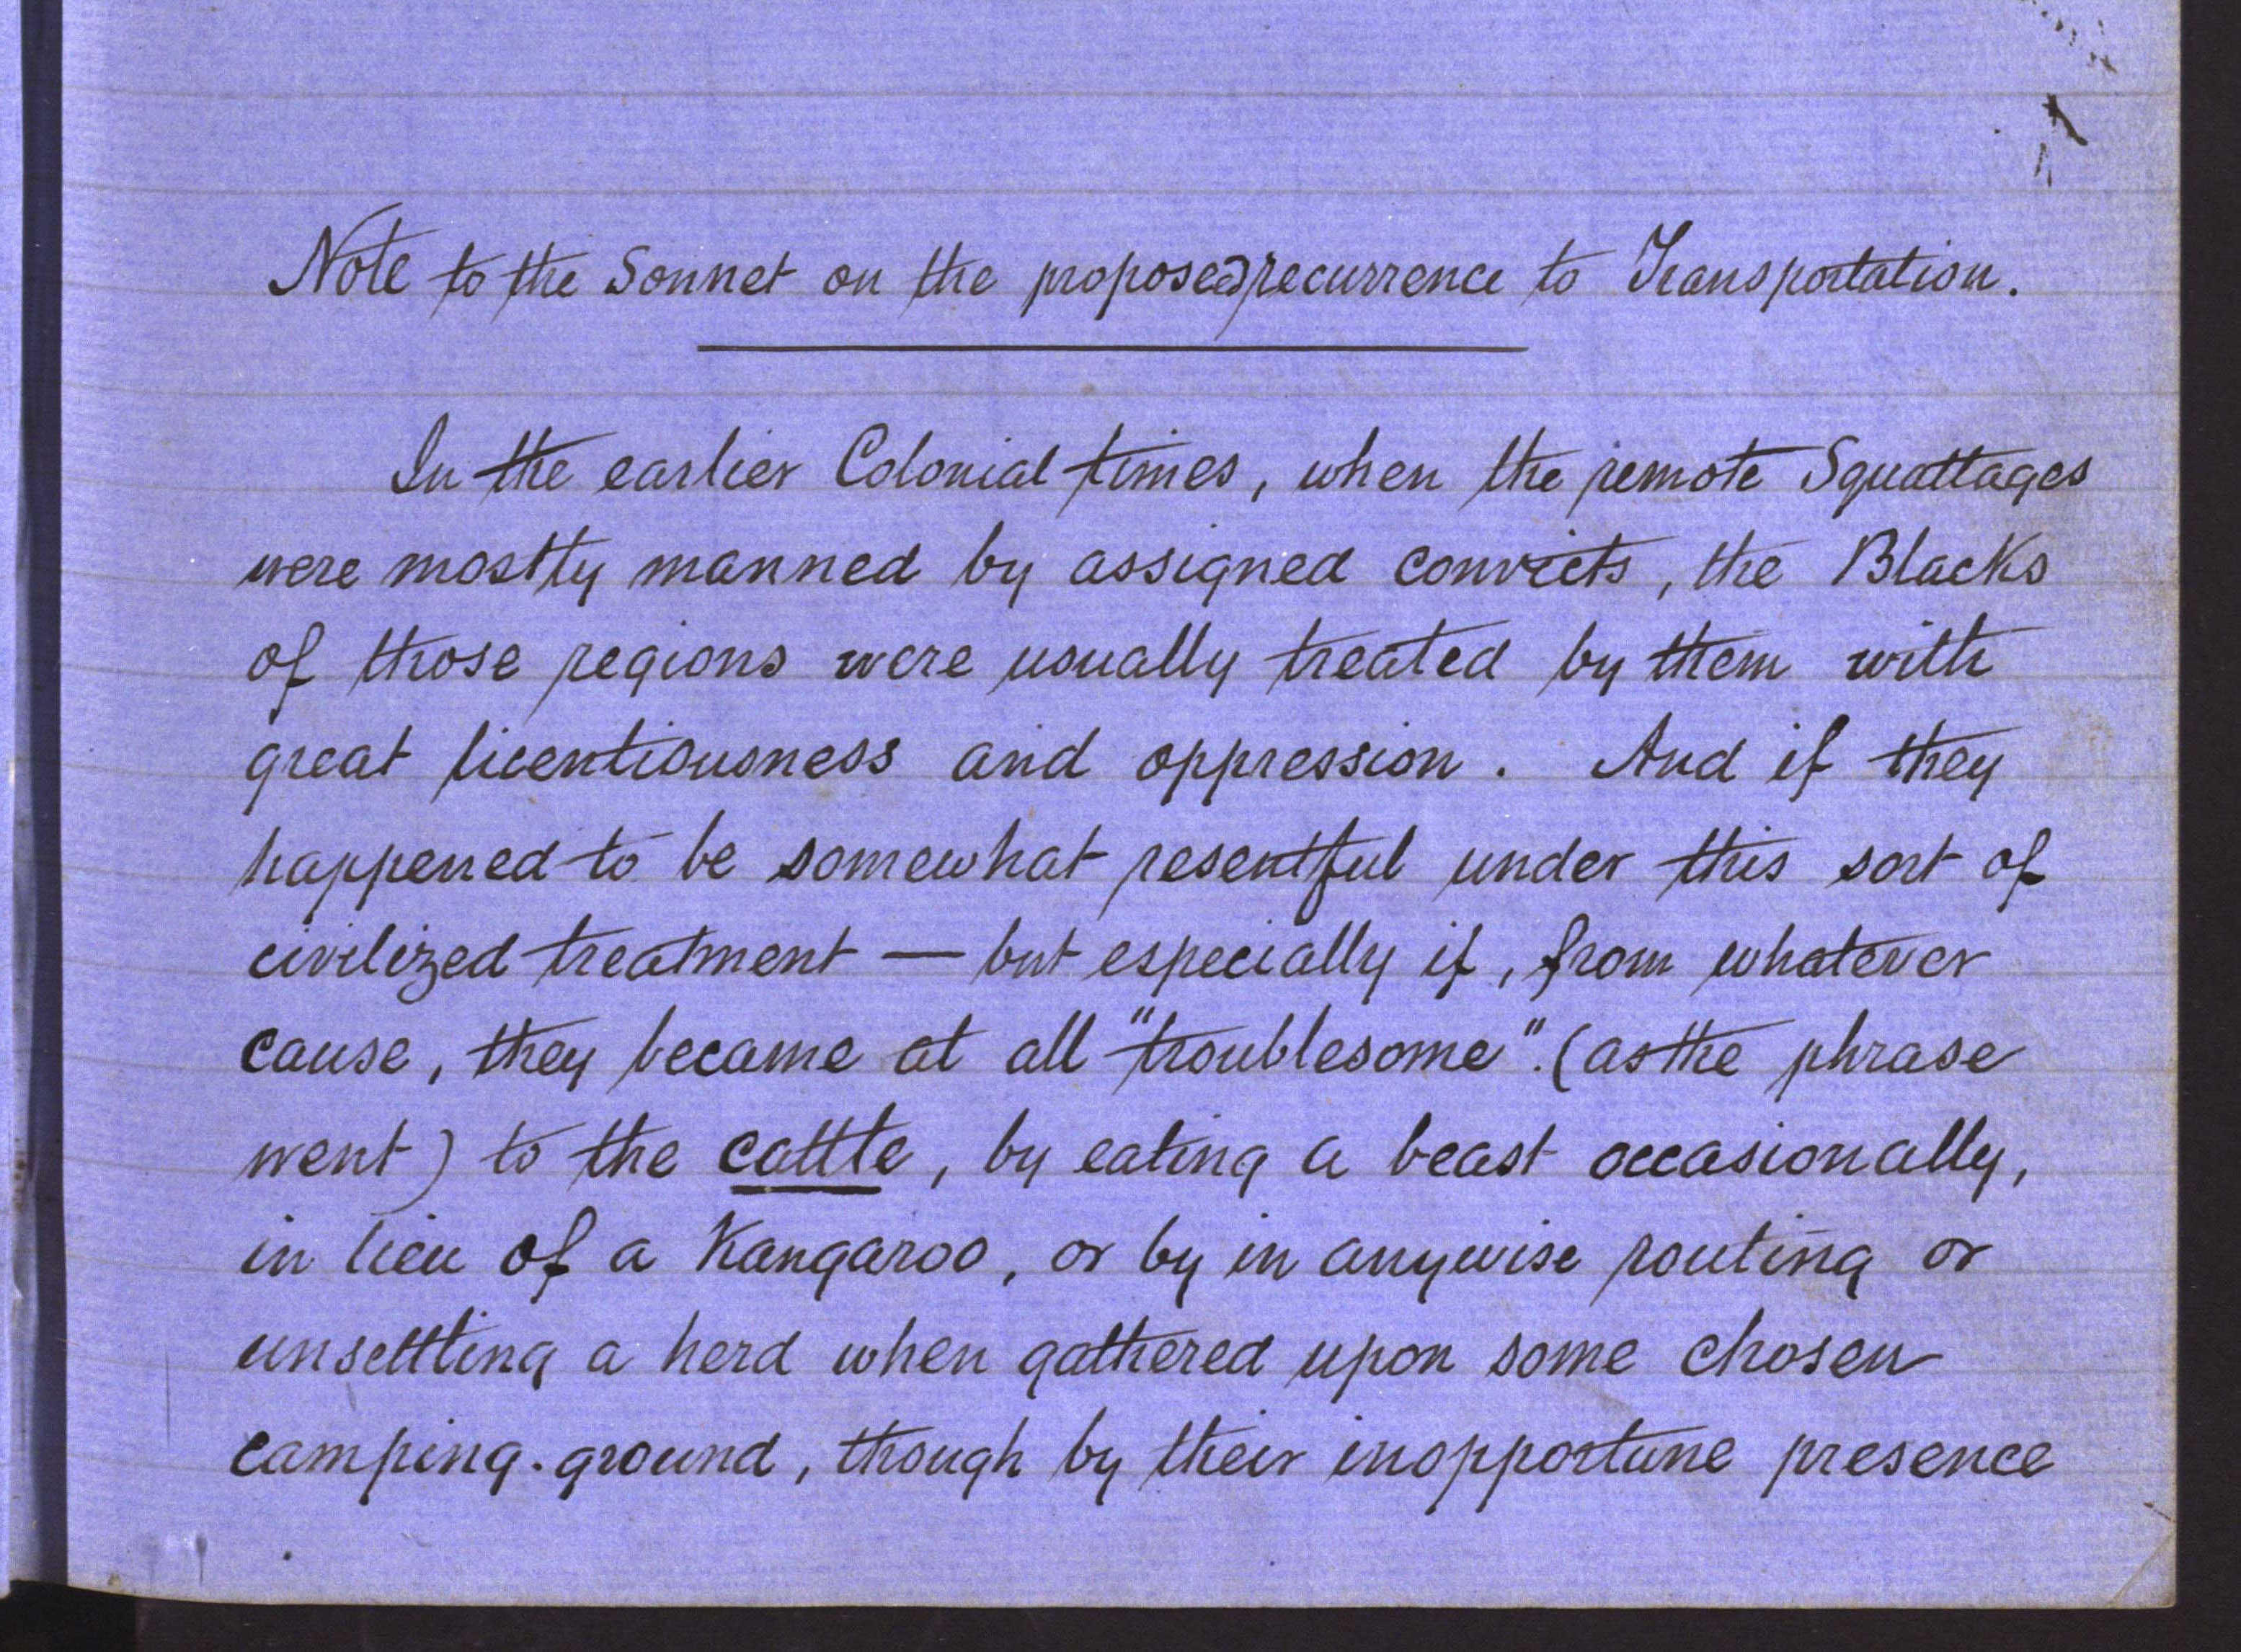 Note to the Sonnet on the proposed recurrence to Transportation.
In the earlier Colonial times, when the remote Squattages
were mostly manned by assigned convicts, the Blacks
of those regions were usually treated by them with
great licentiousness and oppression. And if they
happened to be somewhat resentful under this sort of
civilized treatment — but especially if, from whatever
cause, they became at all "troublesome". (as the phrase
went) to the cattle, by eating a beast occasionally,
in lieu of a Kangaroo, or by in anywise routing or
unsettling a herd when gathered upon some chosen
camping-ground, though by their inopportune presence